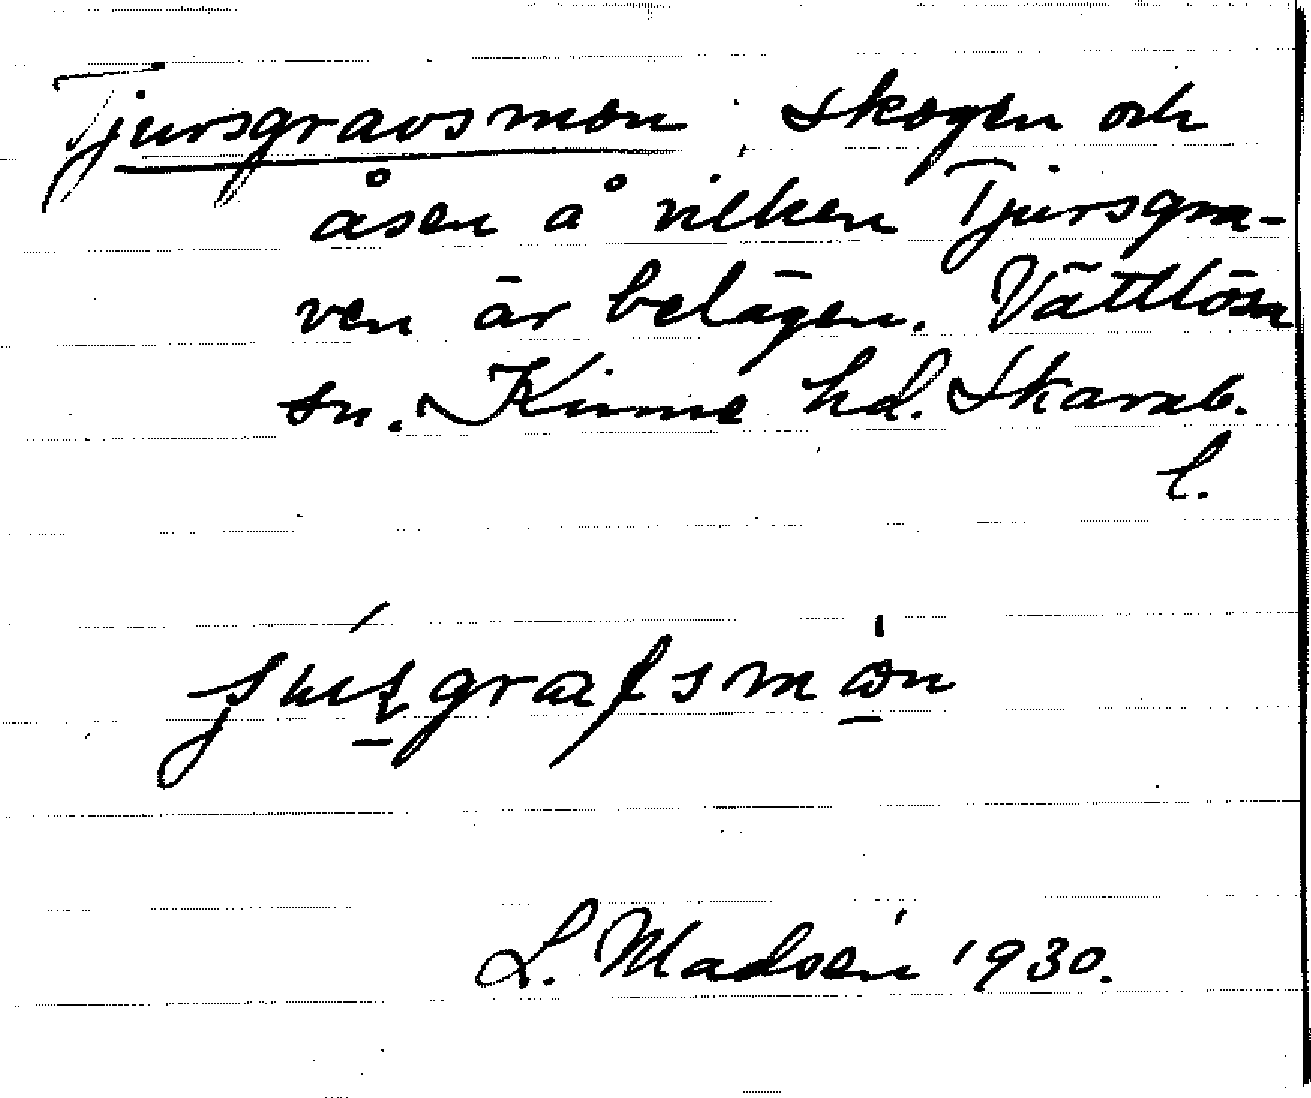 Tjursgravsmon : Skogen och
åsen å vilken Tjursgra-
ven är belägen. Vättlösa
sn. Kinne hd. Skarab.
l.
L. Madsén 1930.